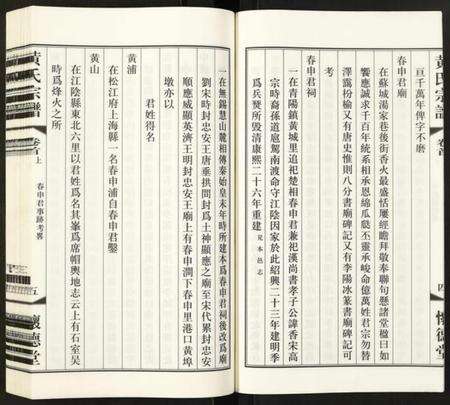 亘千萬年俾字不磨
春申君廟
在蘇城湯家巷後街香火最盛恬屢經瞻拜敬奉聯句懸諸堂楹曰如
饗應誠求千百年統系相承恩綿瓜瓞丕靈承峻命億萬姓君宗勿替
澤靄枌榆又有唐史惟則八分書廟碑記又有李陽冰篆書廟碑記可
考
春申君祠
一在青陽鎮黃城里追祀楚相春申君兼祀漢尚書孝子公諱香宋高
宗時裔孫道所扈駕南渡命守江陰因家於此紹興二十三年建明季
爲兵燹所毀清康熙二十六年重建 見本邑志
四
懷德堂
黃氏宗譜
卷首上
春申君事跡考畧
五
懷德堂
一在無錫慧山麓相傳秦始皇末年時所建本爲春申君祠後改爲廟
劉宋時封忠安王唐垂拱間封爲土神顯應之廟至宋代累封忠安
順應威顯英濟王明封忠安王廟上有春申澗下春申里港口黃埠
墩亦以
君姓得名
黃浦
在松江府上海縣一名春申浦自春申君鑿
黃山
在江陰縣東北六里以君姓爲名其峯爲席帽輿地志云上有石室吴
時爲烽火之所